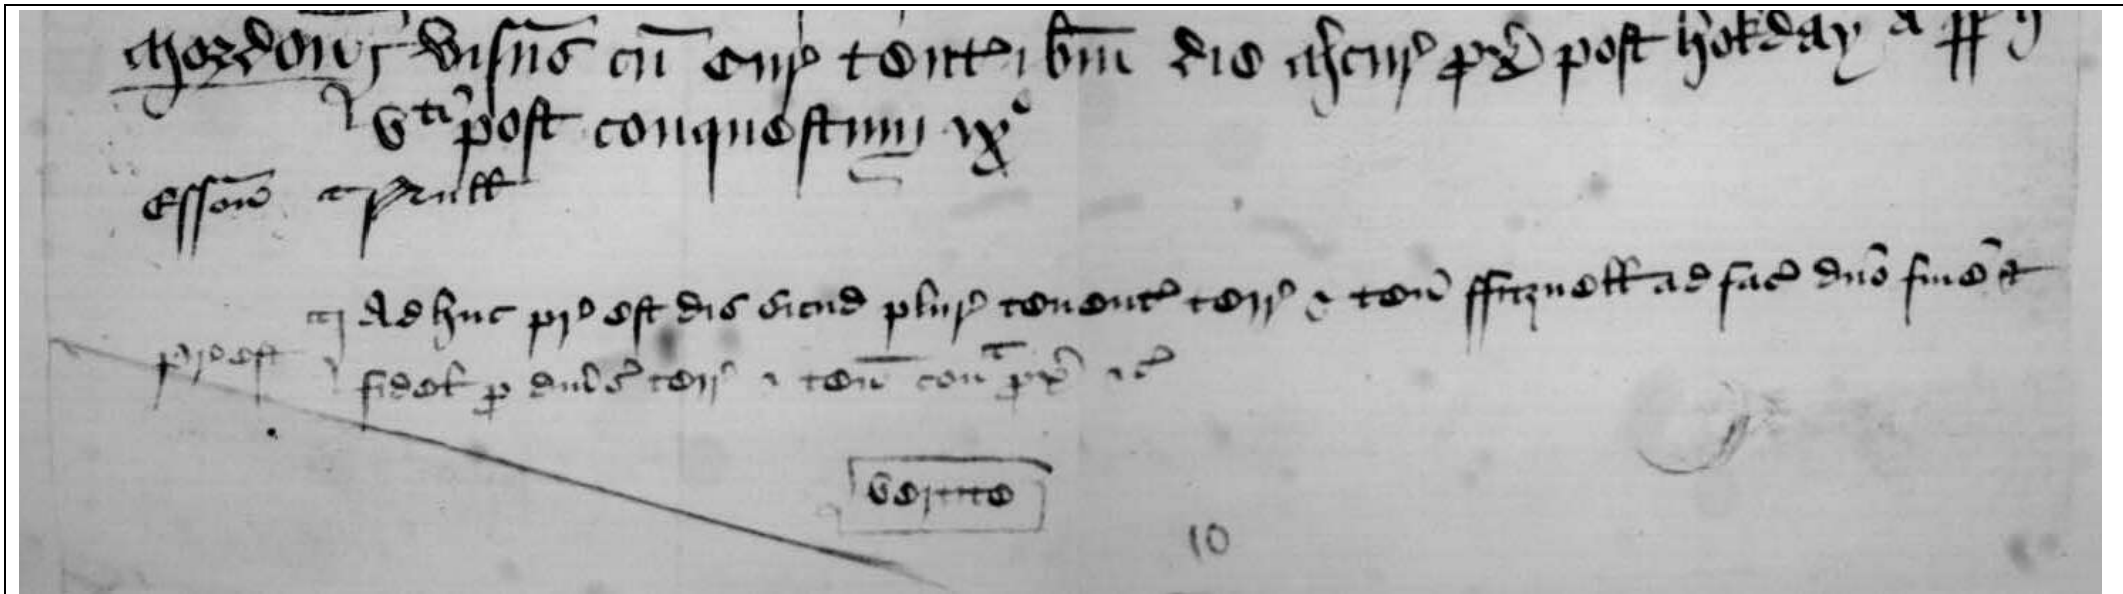 Thordoñ Visus cũ Cur̛ tent̛ ib̃m die m̛cur̛ px̛ post hokday a° rr̛ h
vti post conquestum ix°
Esson̄ a p̛ull
¶ Ad huc pr̛ est dis̛ sicud plur̛ tenent̛ terr̛ & ten̛ ad fac̛ dn̄o fine &
pr̛ est
fidel̛ p terr̛ & ten̄ con̛ p̛x̛ &c̛
Vertite
10